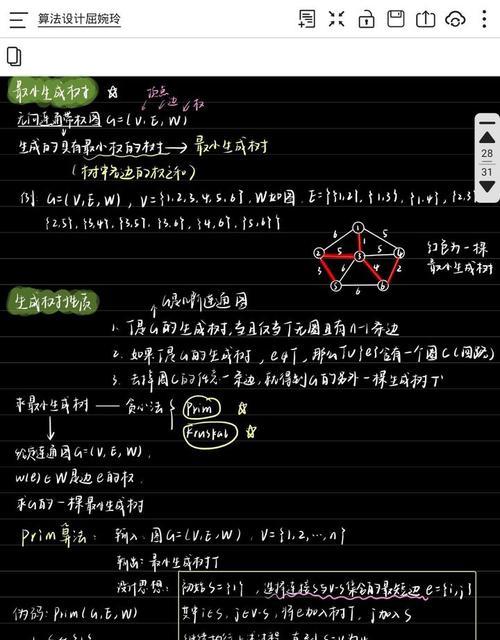 算法设计屈婉玲
28
31
最小生成树 ☆ 顶点 边 权
无向连通带权图 G=(V, E, W)
生成的具有最小权的树 → 最小生成树
(树中各边的权之和)
例. G=(V,E,W), V={1,2,3,4,5,6}, W如图. E={{1,2}, {1,3}, {1,4}, {2,3}
{2,5}, {3,4}, {3,5}, {3,6}, {4,6}, {5,6}}
1 2 3 4 5 6
6 1 5 5 5 3 6 4 2 6
红色为一棵
最小生成树
生成树性质
G是n阶连通图
1. T是G的生成树,当且仅当T无圈且有n-1条边
2. 如果T是G的生成树, e∉T, 那么T∪{e}含有一个圈C(回路)
3. 去掉圈C的任意一条边,就得到G的另外一棵生成树T'
求最小生成树 —— 贪心法 { Prim ☆
Kruskal ☆
给定连通图G=(V, E, W),
w(e)∈W是边e的权.
求G的一棵最小生成树
Prim算法: 输入: 图G=(V, E, W), V={1,2,…,n}
输出: 最小生成树T
设计思想: 初始S={1}, 选择连接S与V-S集合的最短边e={i,j}
伪码: Prim(G, E, W) 其中i∈S, j∈V-S, 将e加入树T, j加入S